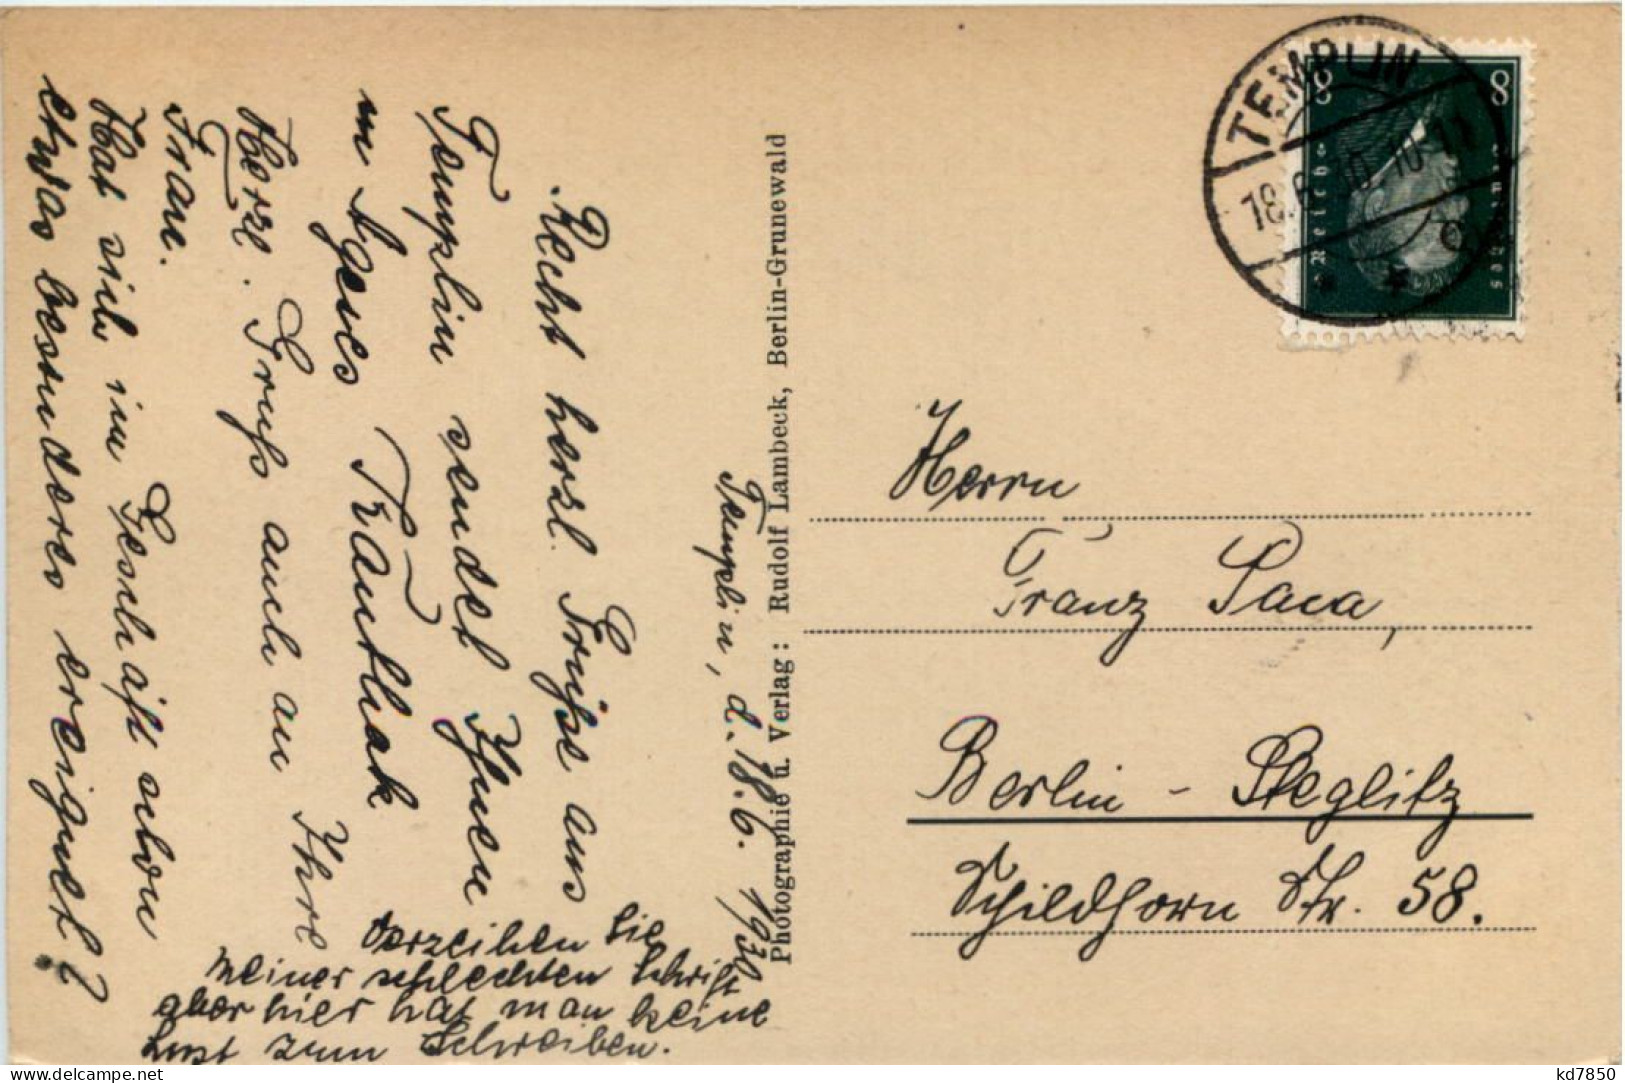 Templin, d. 18.6. 1930
Recht herzl. Grüße aus
Templin sendet Ihnen
Herzl. Gruß auch an Ihre
Frau.
Hat sich im Geschäft schon
etwas besonderes ereignet?
Verzeihen Sie
meiner schlechten Schrift
aber hier hat man keine
Lust zum Schreiben.
Photographie u. Verlag: Rudolf Lambeck, Berlin-Grunewald
TEMPLIN
18.6. 10-11
8 8
Deutsches Reich
Herrn
Franz
Berlin - Steglitz
Schildhorn Str. 58.
delcampe.net
kd7850